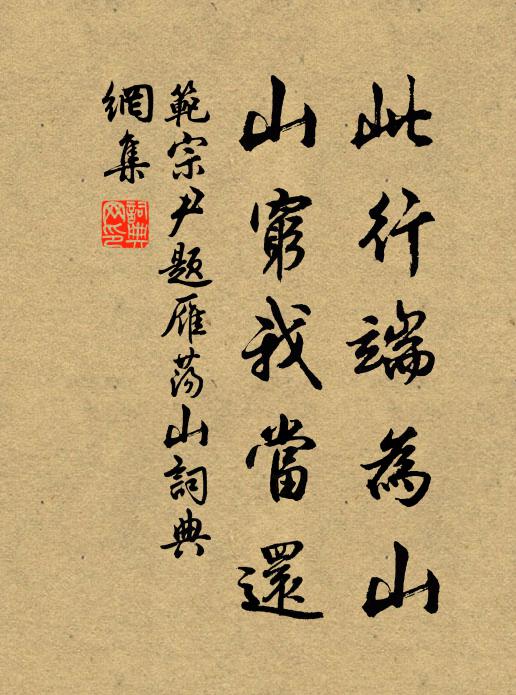 此行端為山
山窮我當還
範宗尹題雁蕩山詞典
網集
詞典
网印